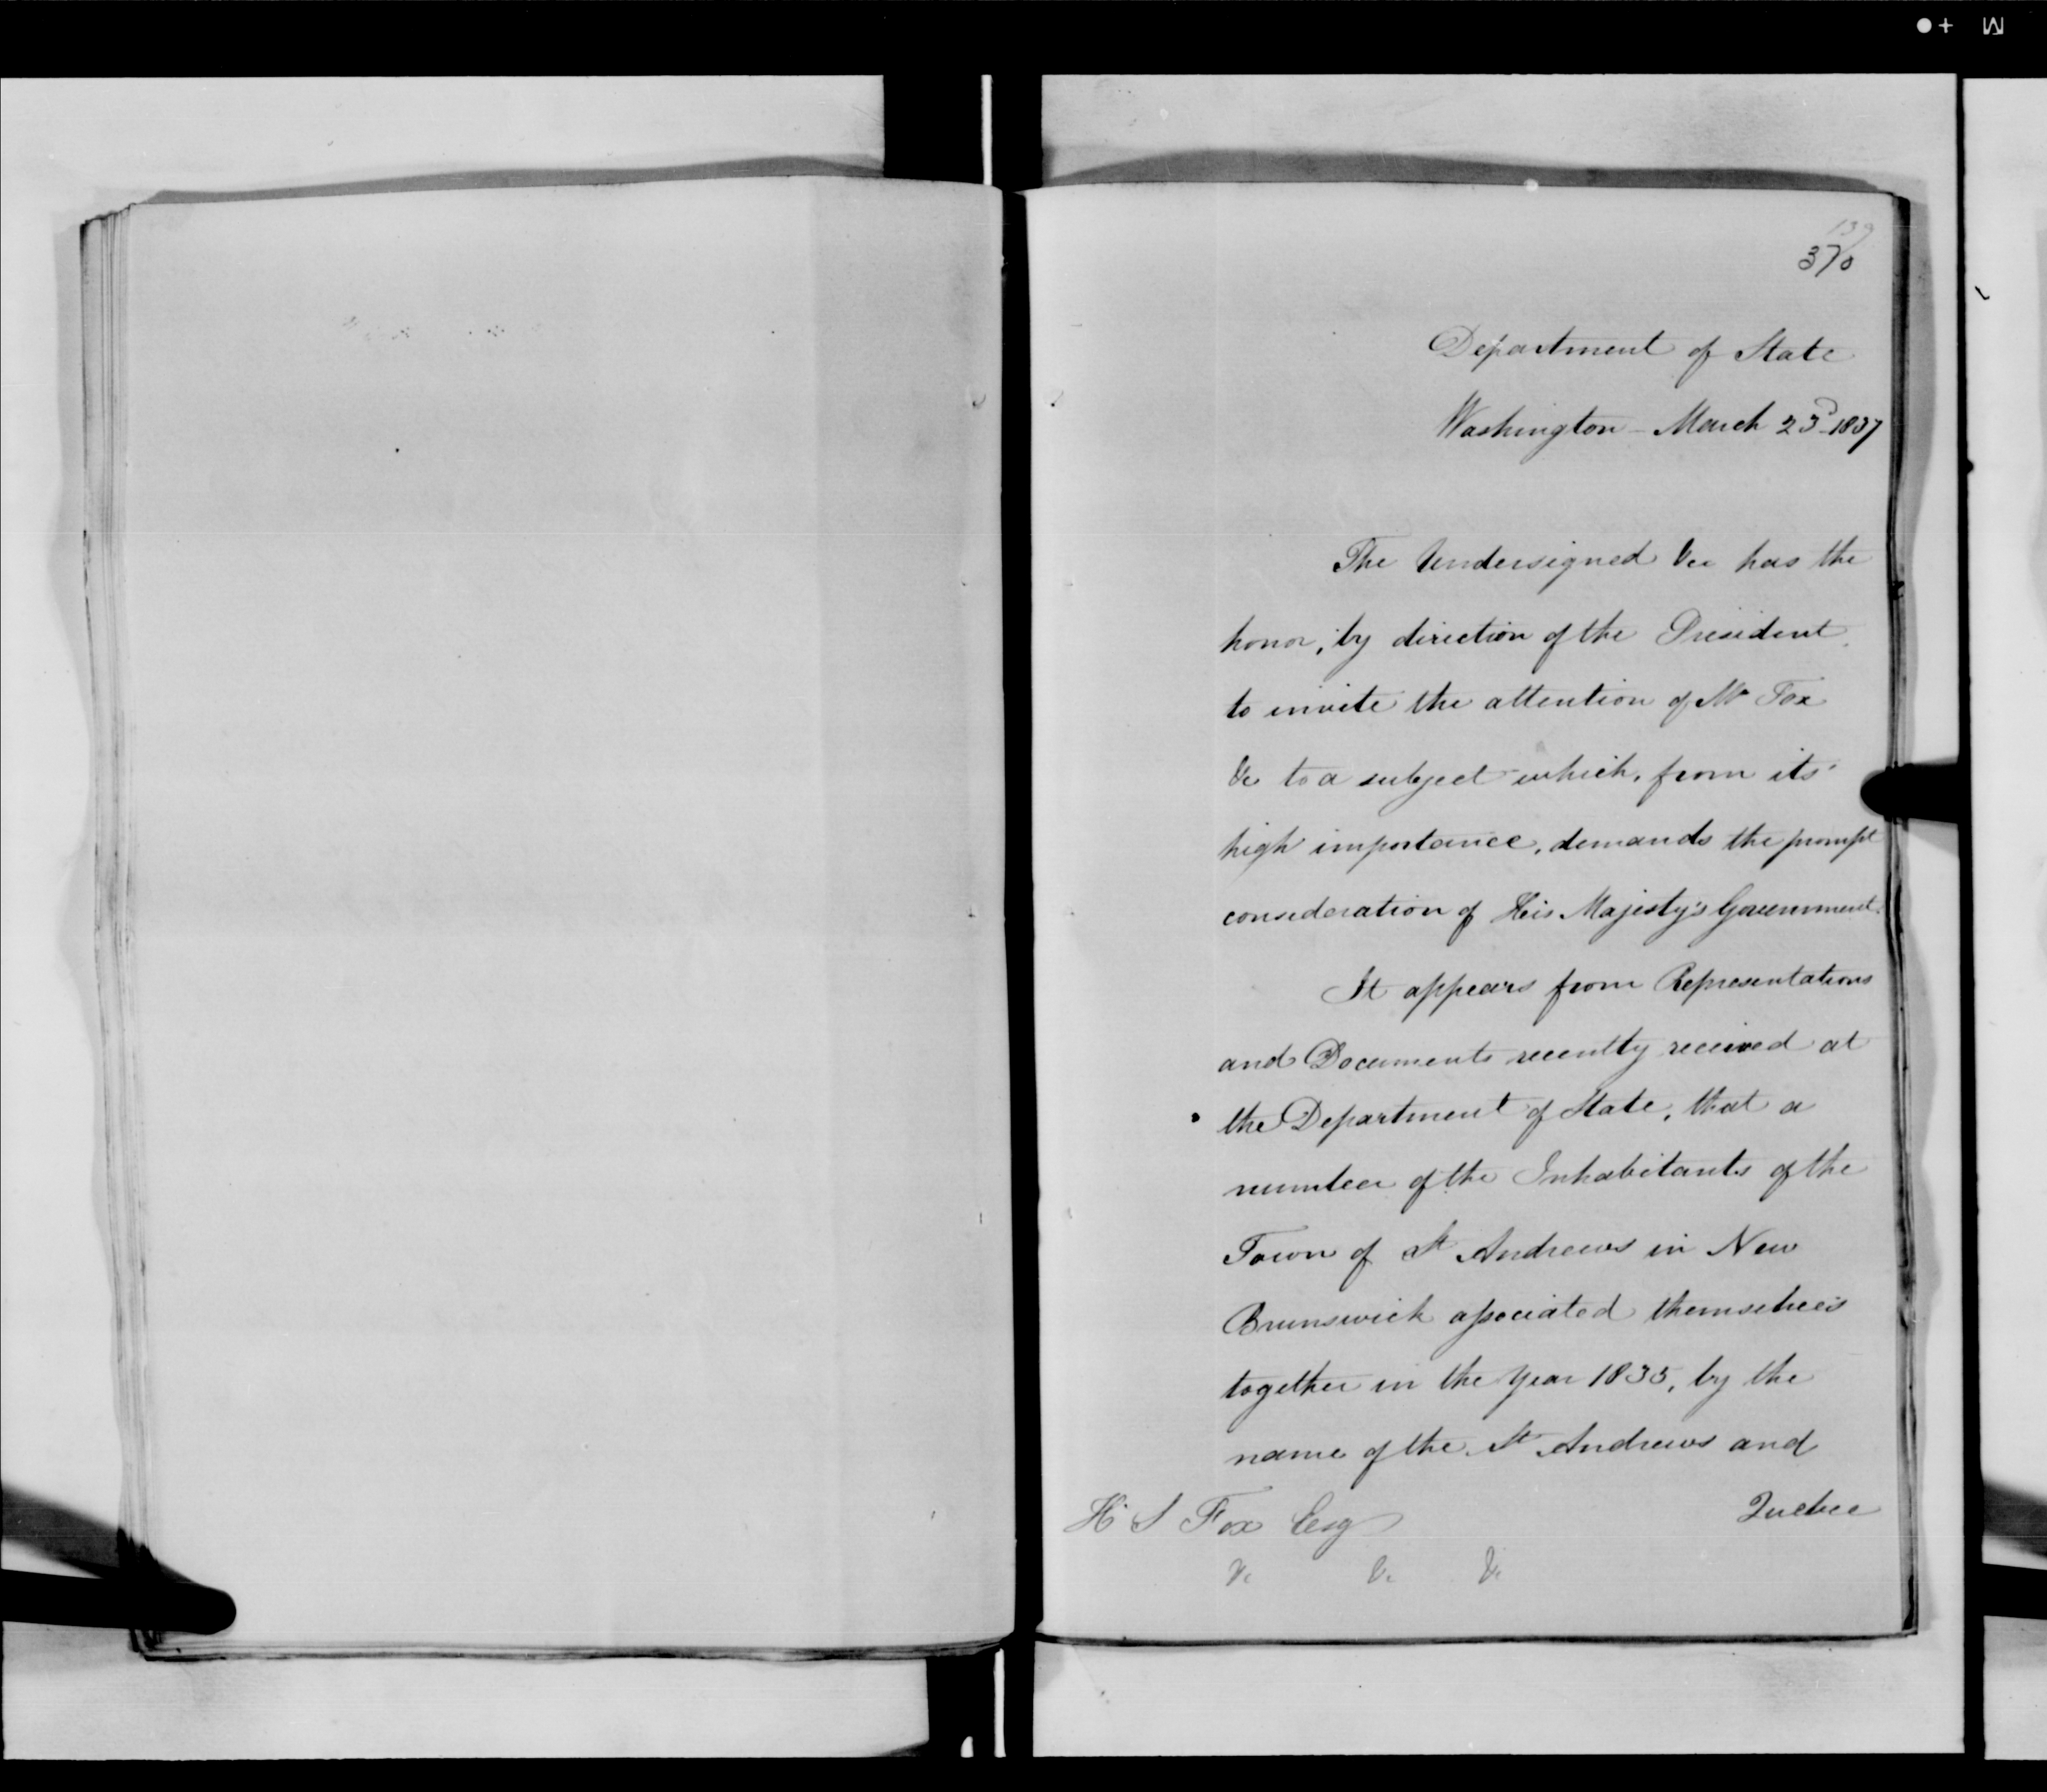 139
370
Department of State
Washington - March 23d 1837
The Undersigned &c has the
honor, by direction of the President,
to invite the attention of Mr Fox
&c to a subject which, from its
high importance, demands the prompt
consideration of His Majesty's Government.
It appears from Representations
and Documents recently received at
the Department of State, that a
number of the Inhabitants of the
Town of St Andrews in New
Brunswick associated themselves
together in the Year 1835, by the
name of the St Andrews and
Quebec
H S Fox Esq
&c &c &c